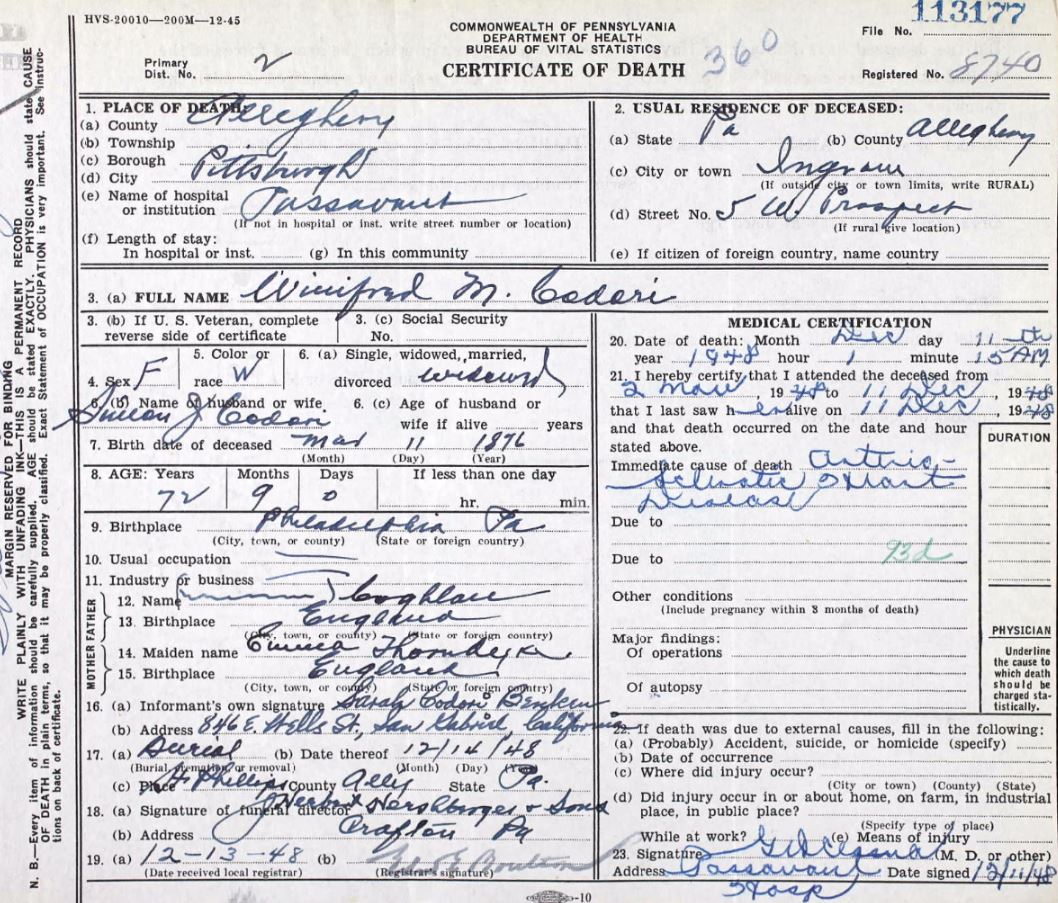 HVS-20010—200M—12-45
COMMONWEALTH OF PENNSYLVANIA
DEPARTMENT OF HEALTH
BUREAU OF VITAL STATISTICS
CERTIFICATE OF DEATH 360
113177
File No.
Primary
Dist. No. 2
Registered No. 8740
MARGIN RESERVED FOR BINDING
WRITE PLAINLY WITH UNFADING INK—THIS IS A PERMANENT RECORD
N. B.—Every item of information should be carefully supplied. AGE should be stated EXACTLY. PHYSICIANS should state CAUSE
OF DEATH in plain terms, so that it may be properly classified. Exact Statement of OCCUPATION is very important. See instruc-
tions on back of certificate.
1. PLACE OF DEATH:
(a) County Allegheny
(b) Township
(c) Borough
(d) City Pittsburgh
(e) Name of hospital
or institution Passavant
(If not in hospital or inst. write street number or location)
(f) Length of stay:
In hospital or inst. (g) In this community
2. USUAL RESIDENCE OF DECEASED:
(a) State Pa (b) County Allegheny
(c) City or town Ingram
(If outside city or town limits, write RURAL)
(d) Street No. 5 W. Prospect
(If rural give location)
(e) If citizen of foreign country, name country
3. (a) FULL NAME Winifred M. Codori
3. (b) If U. S. Veteran, complete
reverse side of certificate
3. (c) Social Security
No.
4. Sex F
5. Color or
race W
6. (a) Single, widowed, married,
divorced widowed
6. (b) Name of husband or wife.
Simon J Codori
6. (c) Age of husband or
wife if alive years
7. Birth date of deceased Mar 11 1876
(Month) (Day) (Year)
8. AGE: Years Months Days If less than one day
72 9 0 hr. min.
9. Birthplace Philadelphia Pa
(City, town, or county) (State or foreign country)
10. Usual occupation
11. Industry or business
FATHER
12. Name Coghlan
13. Birthplace England
(City, town, or county) (State or foreign country)
MOTHER
14. Maiden name Emma Thorndyke
15. Birthplace England
(City, town, or county) (State or foreign country)
16. (a) Informant's own signature Sarah Codori
(b) Address 846 E. Wells St., San Gabriel, California
17. (a) Burial (b) Date thereof 12/14/48
(Burial, cremation or removal) (Month) (Day) (Year)
(c) Place St Phillips County Ally State Pa.
18. (a) Signature of funeral director J Herbert Hershberger & Sons
(b) Address Crafton Pa
19. (a) 12-13-48 (b)
(Date received local registrar) (Registrar's signature)
MEDICAL CERTIFICATION
20. Date of death: Month Dec day 11th
year 1948 hour 1 minute 15 AM
21. I hereby certify that I attended the deceased from
2 Mar, 1948 to 11 Dec, 1948
that I last saw her alive on 11 Dec, 1948
and that death occurred on the date and hour
stated above.
Immediate cause of death Arterio-
Sclerotic Heart
Disease
Due to
Due to 93d
Other conditions
(Include pregnancy within 3 months of death)
Major findings:
Of operations
Of autopsy
DURATION
PHYSICIAN
Underline
the cause to
which death
should be
charged sta-
tistically.
22. If death was due to external causes, fill in the following:
(a) (Probably) Accident, suicide, or homicide (specify)
(b) Date of occurrence
(c) Where did injury occur?
(City or town) (County) (State)
(d) Did injury occur in or about home, on farm, in industrial
place, in public place?
(Specify type of place)
While at work? (e) Means of injury
23. Signature (M. D. or other)
Address Passavant Date signed 12/11/48
Hosp
-10